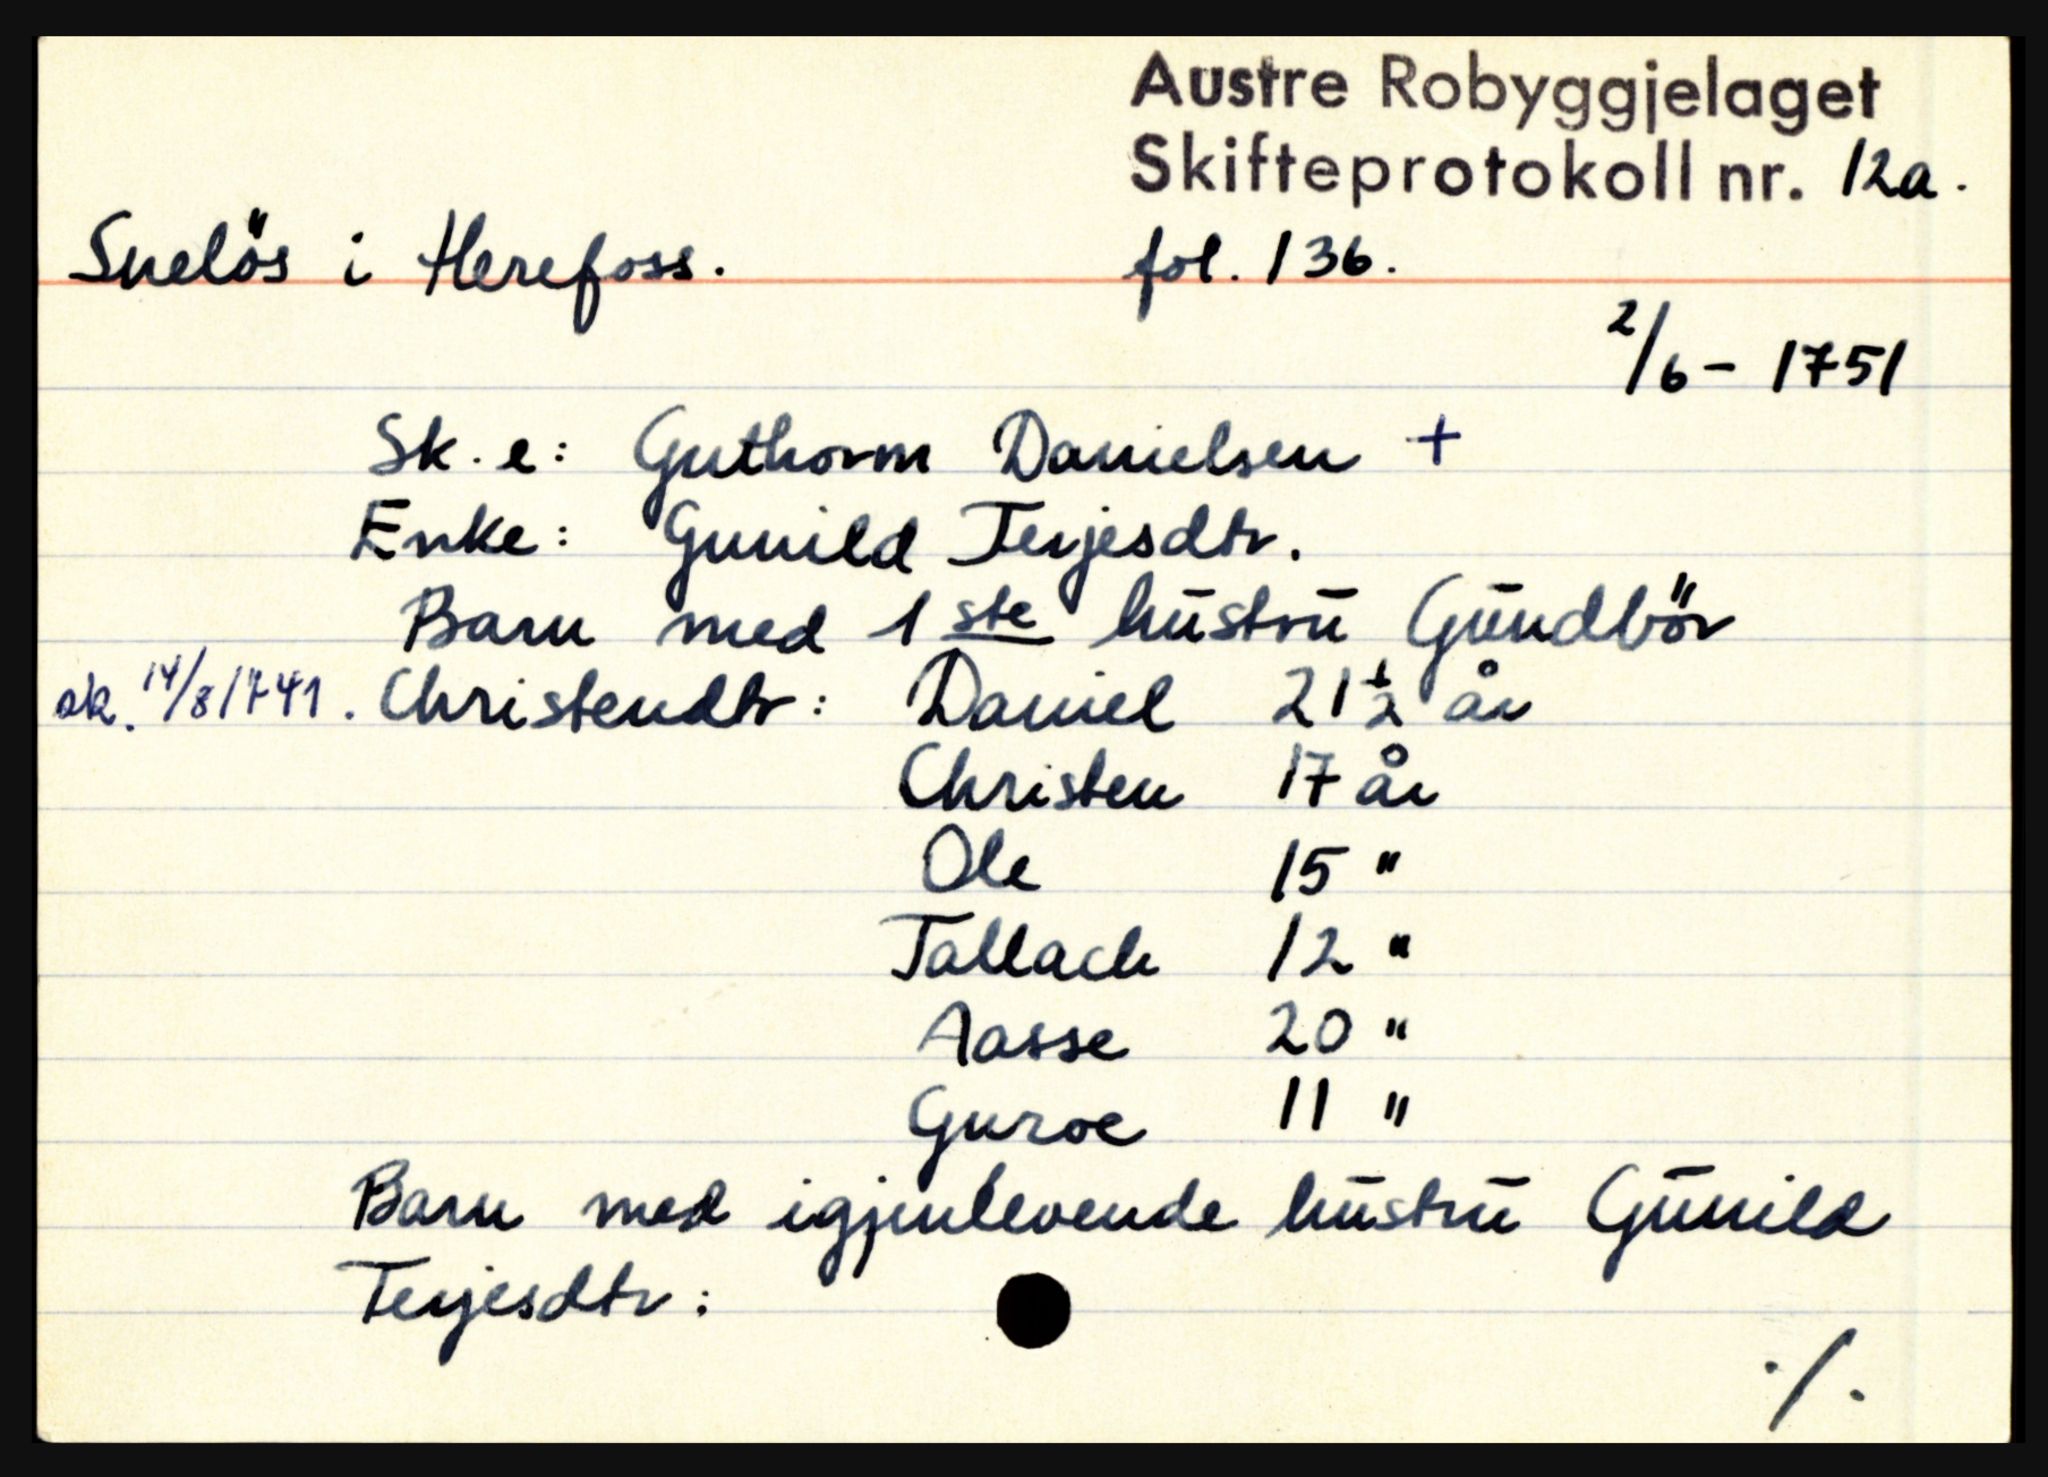 Austre Robyggjelaget
Skifteprotokoll nr. 12a.
Snelös i Herefoss. fol. 136.
2/6 - 1751
Sk. e: Guthorm Danielsen +
Enke: Gunild Terjesdtr.
Barn med 1ste hūstrū Gūndbör
sk. 14/8 1741. Christendtr: Daniel 21½ år
Christen 17 år
Ole 15 "
Tallach 12 "
Aasse 20 "
Guroe 11 "
Barn med igjenlevende hūstrū Gūnild
Terjesdtr:
./.